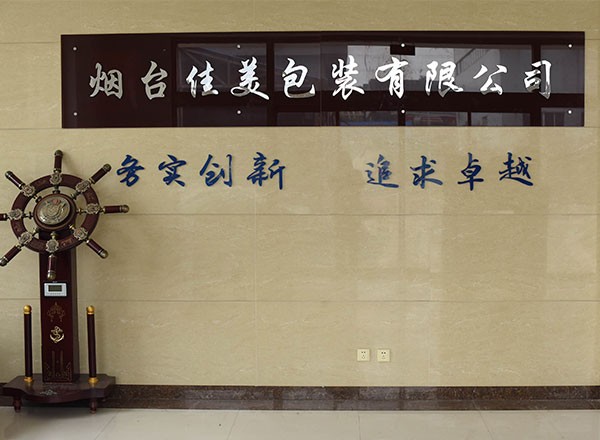 烟台佳美包装有限公司
务实创新 追求卓越